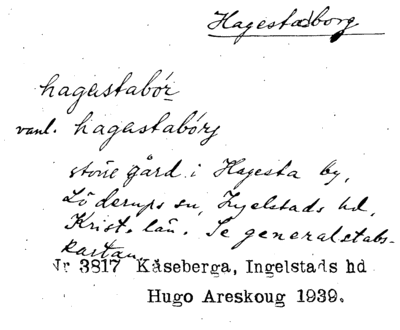 Hagestadborg
hagestabór
vanl. hagestabórg
större gård i Hagesta by,
Löderups sn, Ingelstads hd,
Krist. län. Se generalstabs-
kartan
Nr 3817 Kåseberga, Ingelstads hd
Hugo Areskoug 1939.